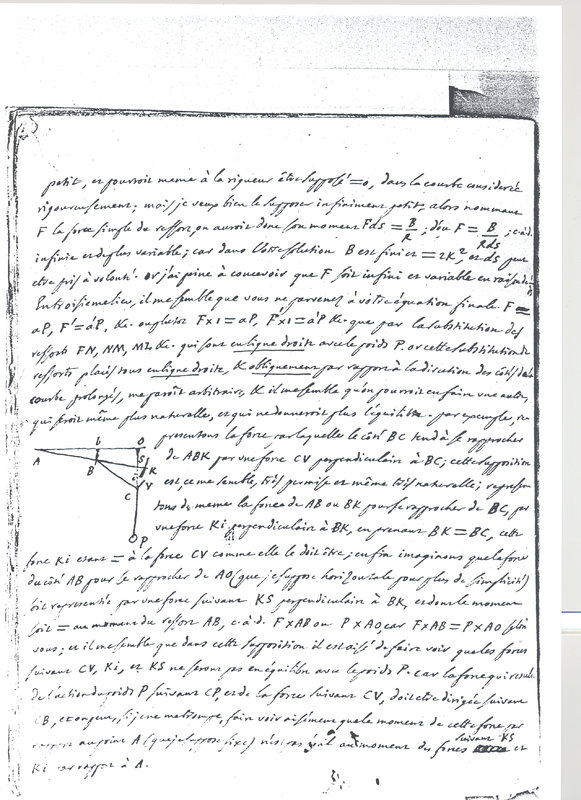 petit, et pourroit meme à la rigueur être supposé = 0, dans la courbe considerée
rigoureusement; mais je veux bien le supposer infiniment petit, alors nommant
F la force simple du ressort, on auroit donc son moment Fds = B/R; d'où F = B/Rds; c.à.d.
infinie et de plus variable; car dans Votre solution B est fini et = 2K², et ds peut
etre pris à volonté. Or j'ai peine à concevoir que F soit infini et variable en raison de
En troisieme lieu, il me semble que vous ne parvenez à vôtre équation finale F =
aP, F' = a'P, &c. ou plutôt F x 1 = aP, F' x 1 = a'P &c. que par la substitution des
ressorts FN, NM, ML &c. qui sont en ligne droite avec le poids P. or cette substitution de
ressorts placés tous en ligne droite, & obliquement par rapport à la direction des côtés de la
courbe prolongés, me paroît arbitraire, & il me semble qu'on pourroit en faire une autre,
qui seroit même plus naturelle, et qui ne donneroit plus l'équilibre. par exemple, re
presentons la force par laquelle le côté BC tend à se rapprocher
de ABK par une force CV perpendiculaire à BC; cette supposition
est, ce me semble, très permise et même très naturelle; represen
tons de meme la force de AB ou BK pour se rapprocher de BC, par
une force Ki perpendiculaire à BK, en prenant BK = BC, cette
A b O S K B i V C P
force Ki etant = à la force CV comme elle le doit être; enfin imaginons que la force
du côté AB pour se rapprocher de AO (que je suppose horizontale pour plus de simplicité)
soit representée par une force suivant KS perpendiculaire à BK, et dont le moment
soit = au moment du ressort AB, c.à.d. F x AB ou P x AO, car F x AB = P x AO selon
vous; et il me semble que dans cette supposition il est aisé de faire voir que les forces
suivant CV, Ki, et KS ne seront pas en équilibre avec le poids P. car la force qui resulte
de l'action du poids P suivant CP, et de la force suivant CV, doit etre dirigée suivant
CB, et on peut, si je ne me trompe, faire voir aisément que le moment de cette force par
rapport au point A (que je suppose fixe) n'est pas égal au moment des forces suivant KS et
Ki par rapport à A.